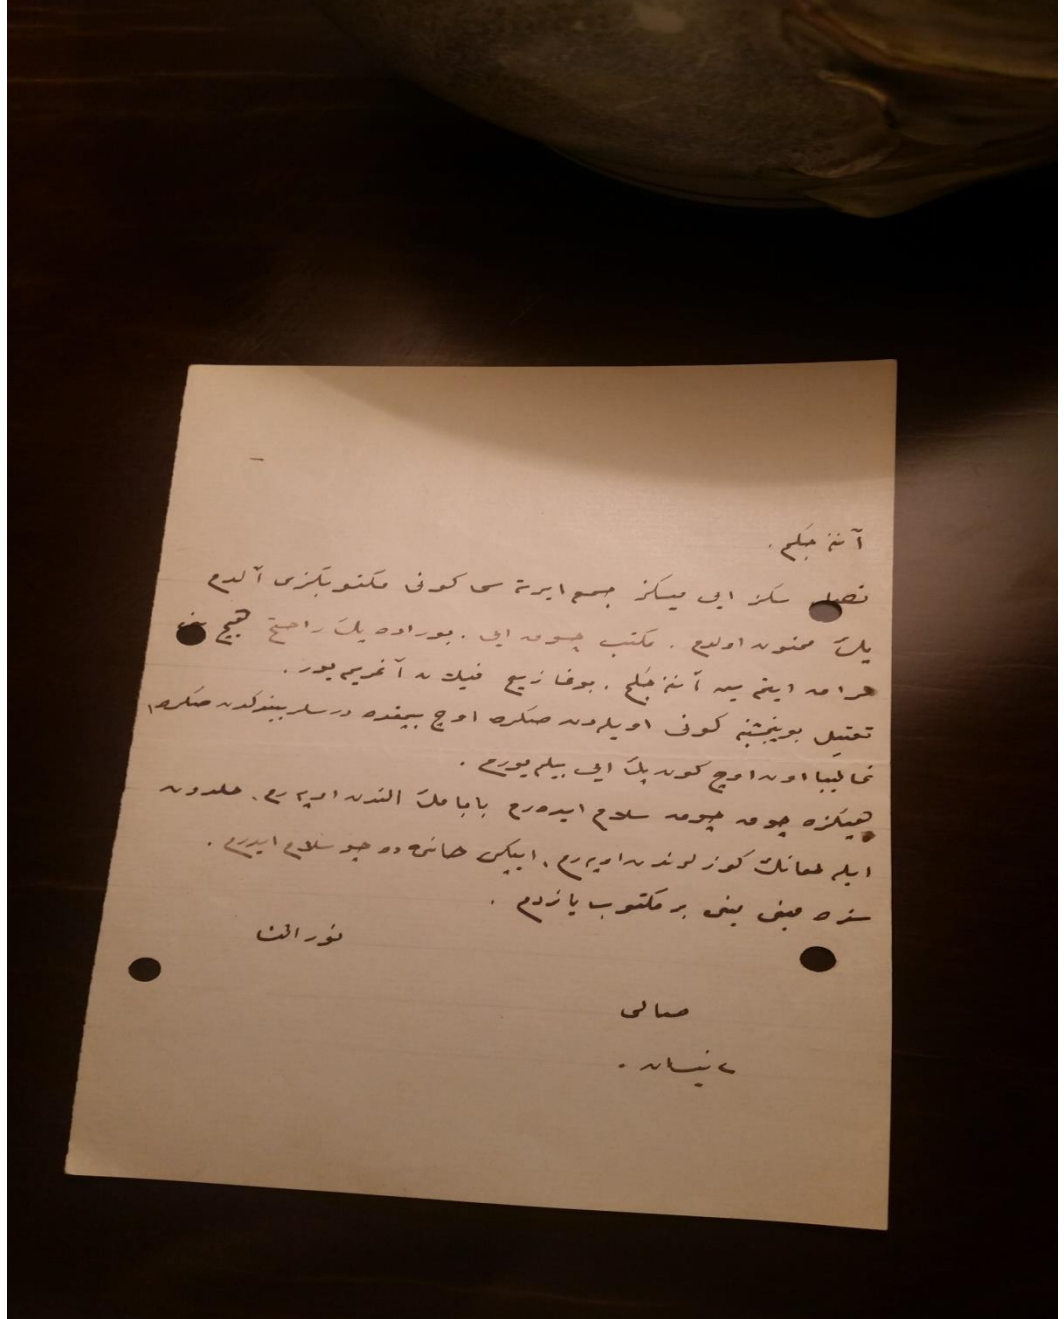 آننه جكم .
نصل سكز ايى ميسكز جمع ايرته سى كونى مكتوبكزى آلدم
پك ممنون اولدم . مكتب چوق ايى . بوراده پك راحتم هيچ
مراق ايتميين آننه جكم . بوغازيم فيلان آغريميور .
تعتيل بو پنجشنبه كونى اويله دن صكره اوچ بچقده درسلر بيتدكدن صكره
غاليبا اون اوچ كون پك ايى بيلميورم .
هپيكزه چوق چوق سلام ايدەرم بابامك الندن اوپەرم . خلدون
ايله لمعانك كوزلرندن اوپەرم . ايپكى خانمه ده چو سلام ايدرم .
سزه مينى مينى بر مكتوب يازدم .
نور النسا
صالى
نيسان .